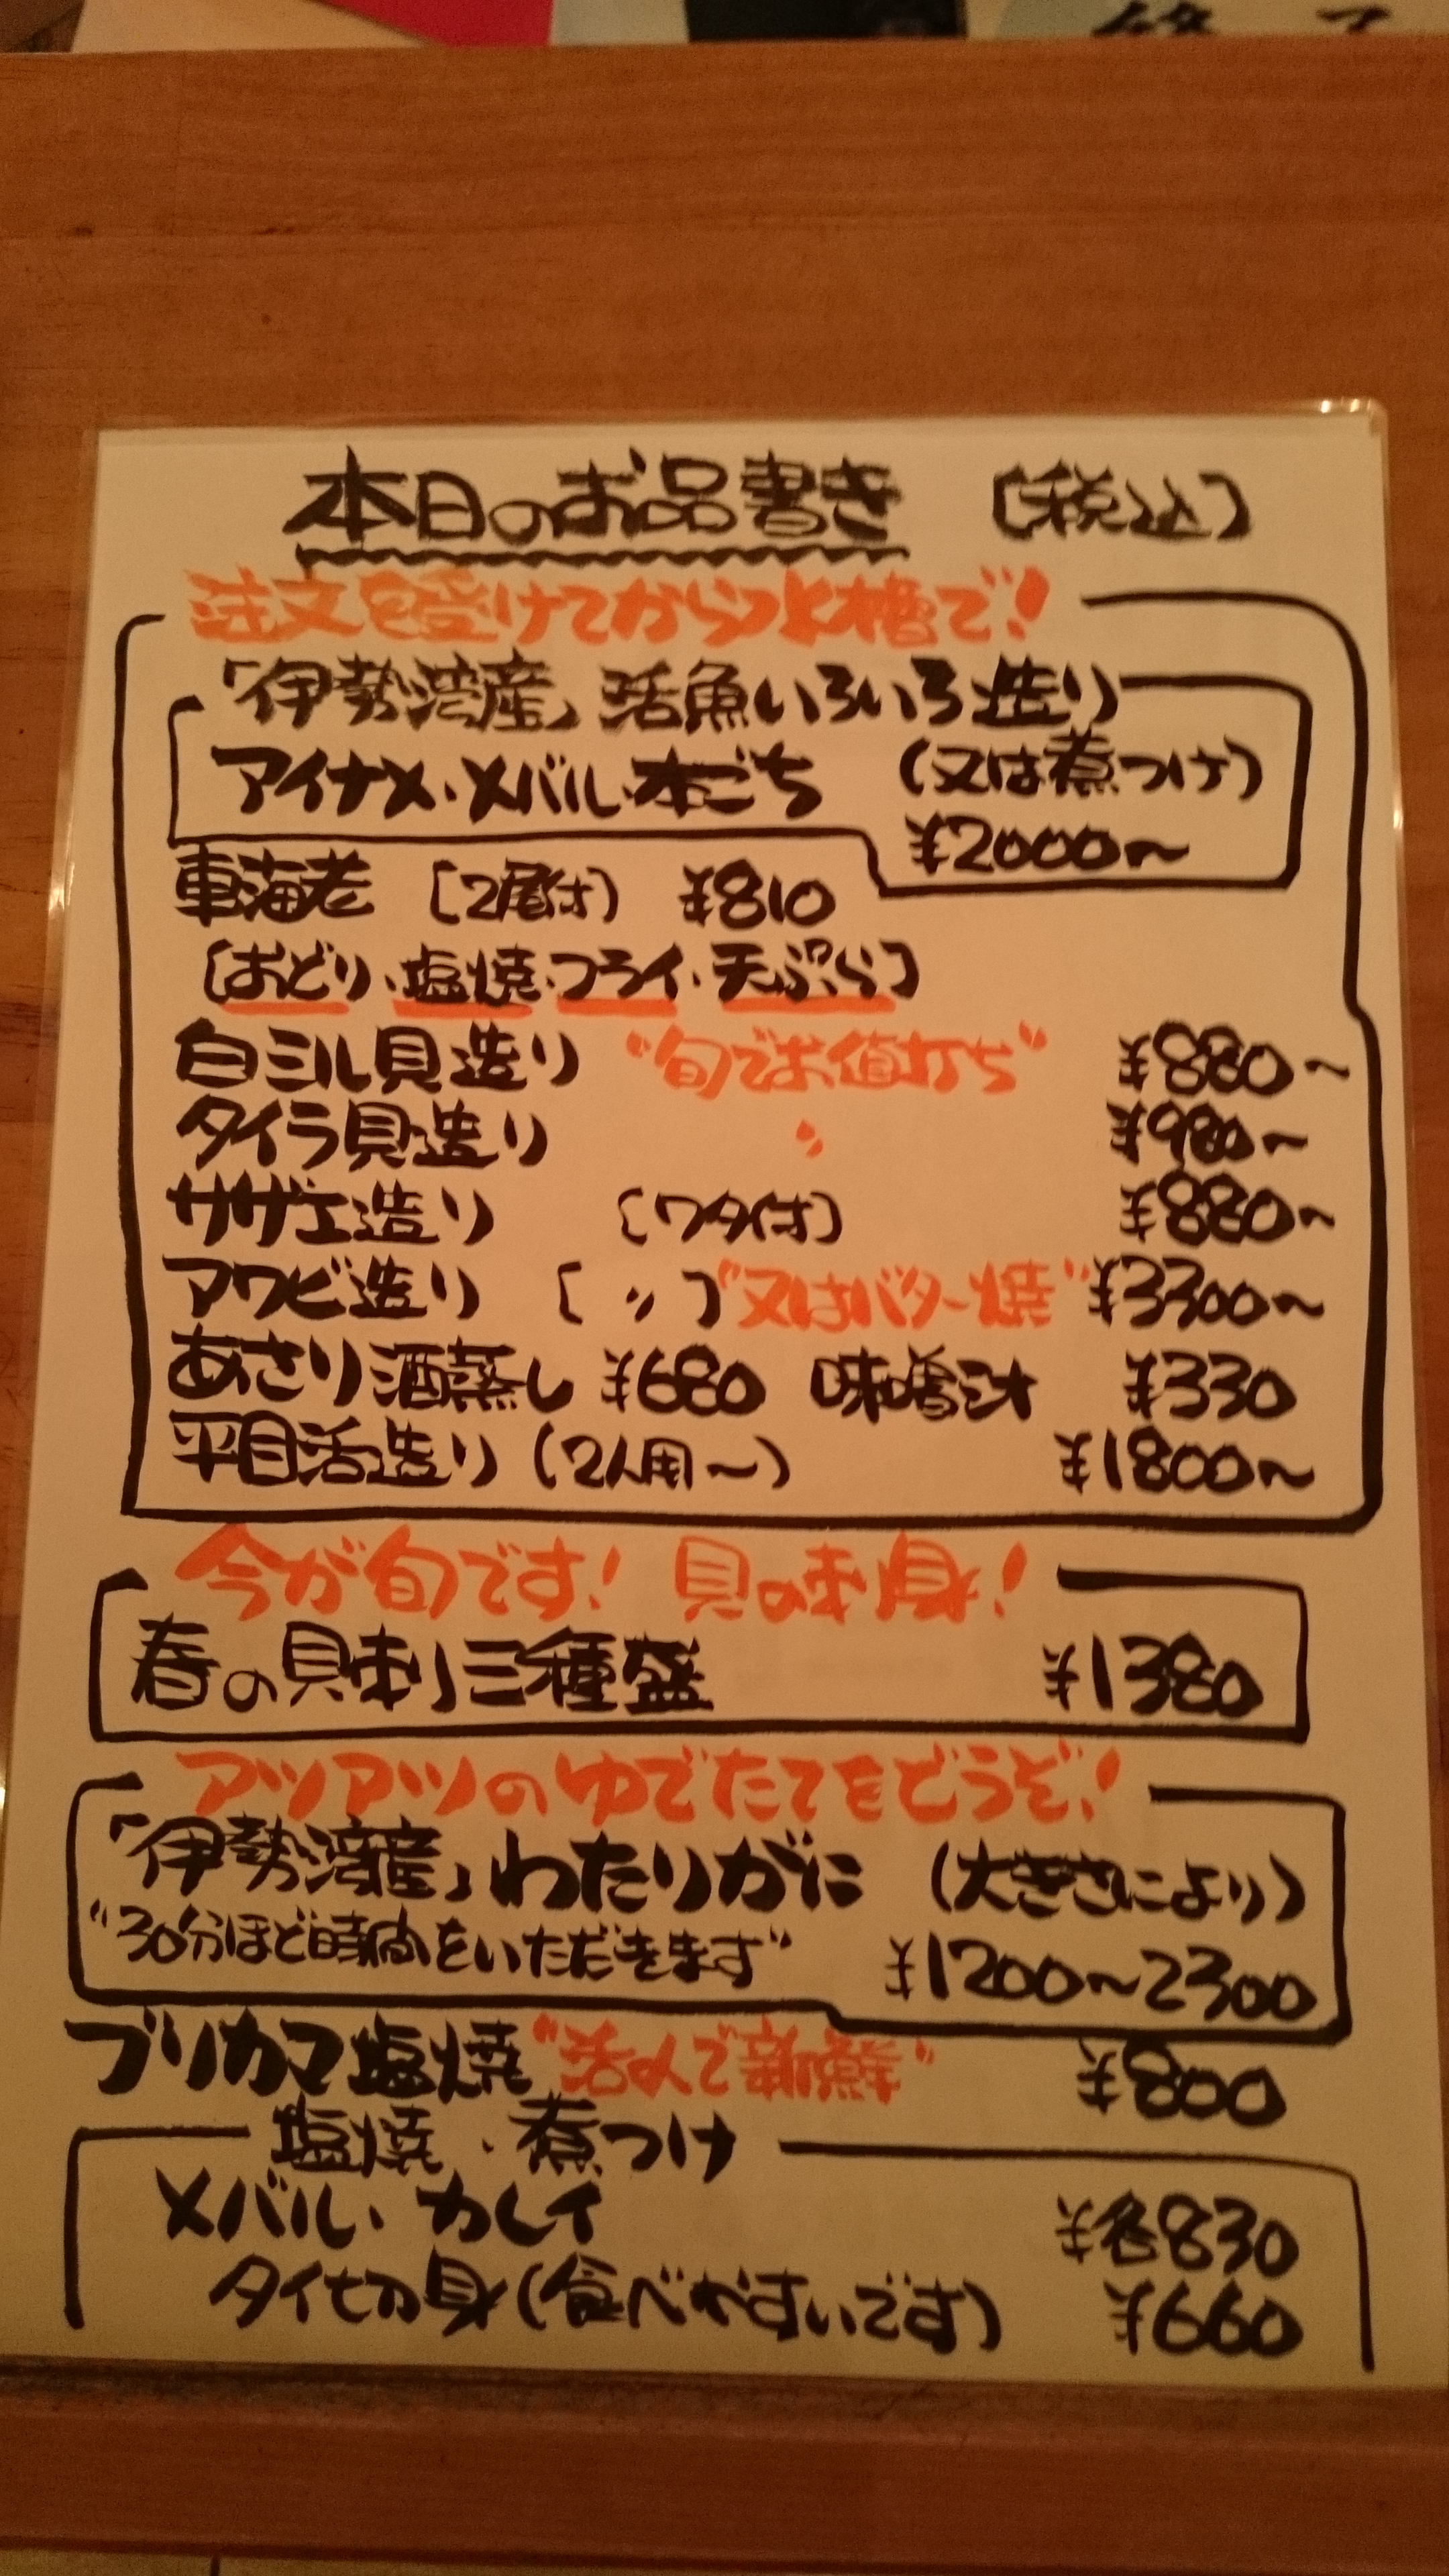 本日のお品書き 〔税込〕
注文を受けてから水槽で!
「伊勢湾産」活魚いろいろ造り
アイナメ・メバル・本ごち (又は煮つけ)
¥2000〜
車海老 〔2尾付〕 ¥810
〔おどり・塩焼・フライ・天ぷら〕
白ミル貝造り "旬でお値打ち" ¥880〜
タイラ貝造り 〃 ¥980〜
サザエ造り 〔ワタ付〕 ¥880〜
アワビ造り 〔 〃 〕 "又はバター焼" ¥3300〜
あさり酒蒸し ¥680 味噌汁 ¥330
平目活造り (2人用〜) ¥1800〜
今が旬です! 貝の刺身!
春の貝刺三種盛 ¥1380
アツアツのゆでたてをどうぞ!
「伊勢湾産」わたりがに (大きさにより)
"30分ほど時間をいただきます" ¥1200〜2300
ブリカマ塩焼 "活〆で新鮮" ¥800
塩焼・煮つけ
メバル・カレイ ¥各830
タイ切身(食べやすいです) ¥660